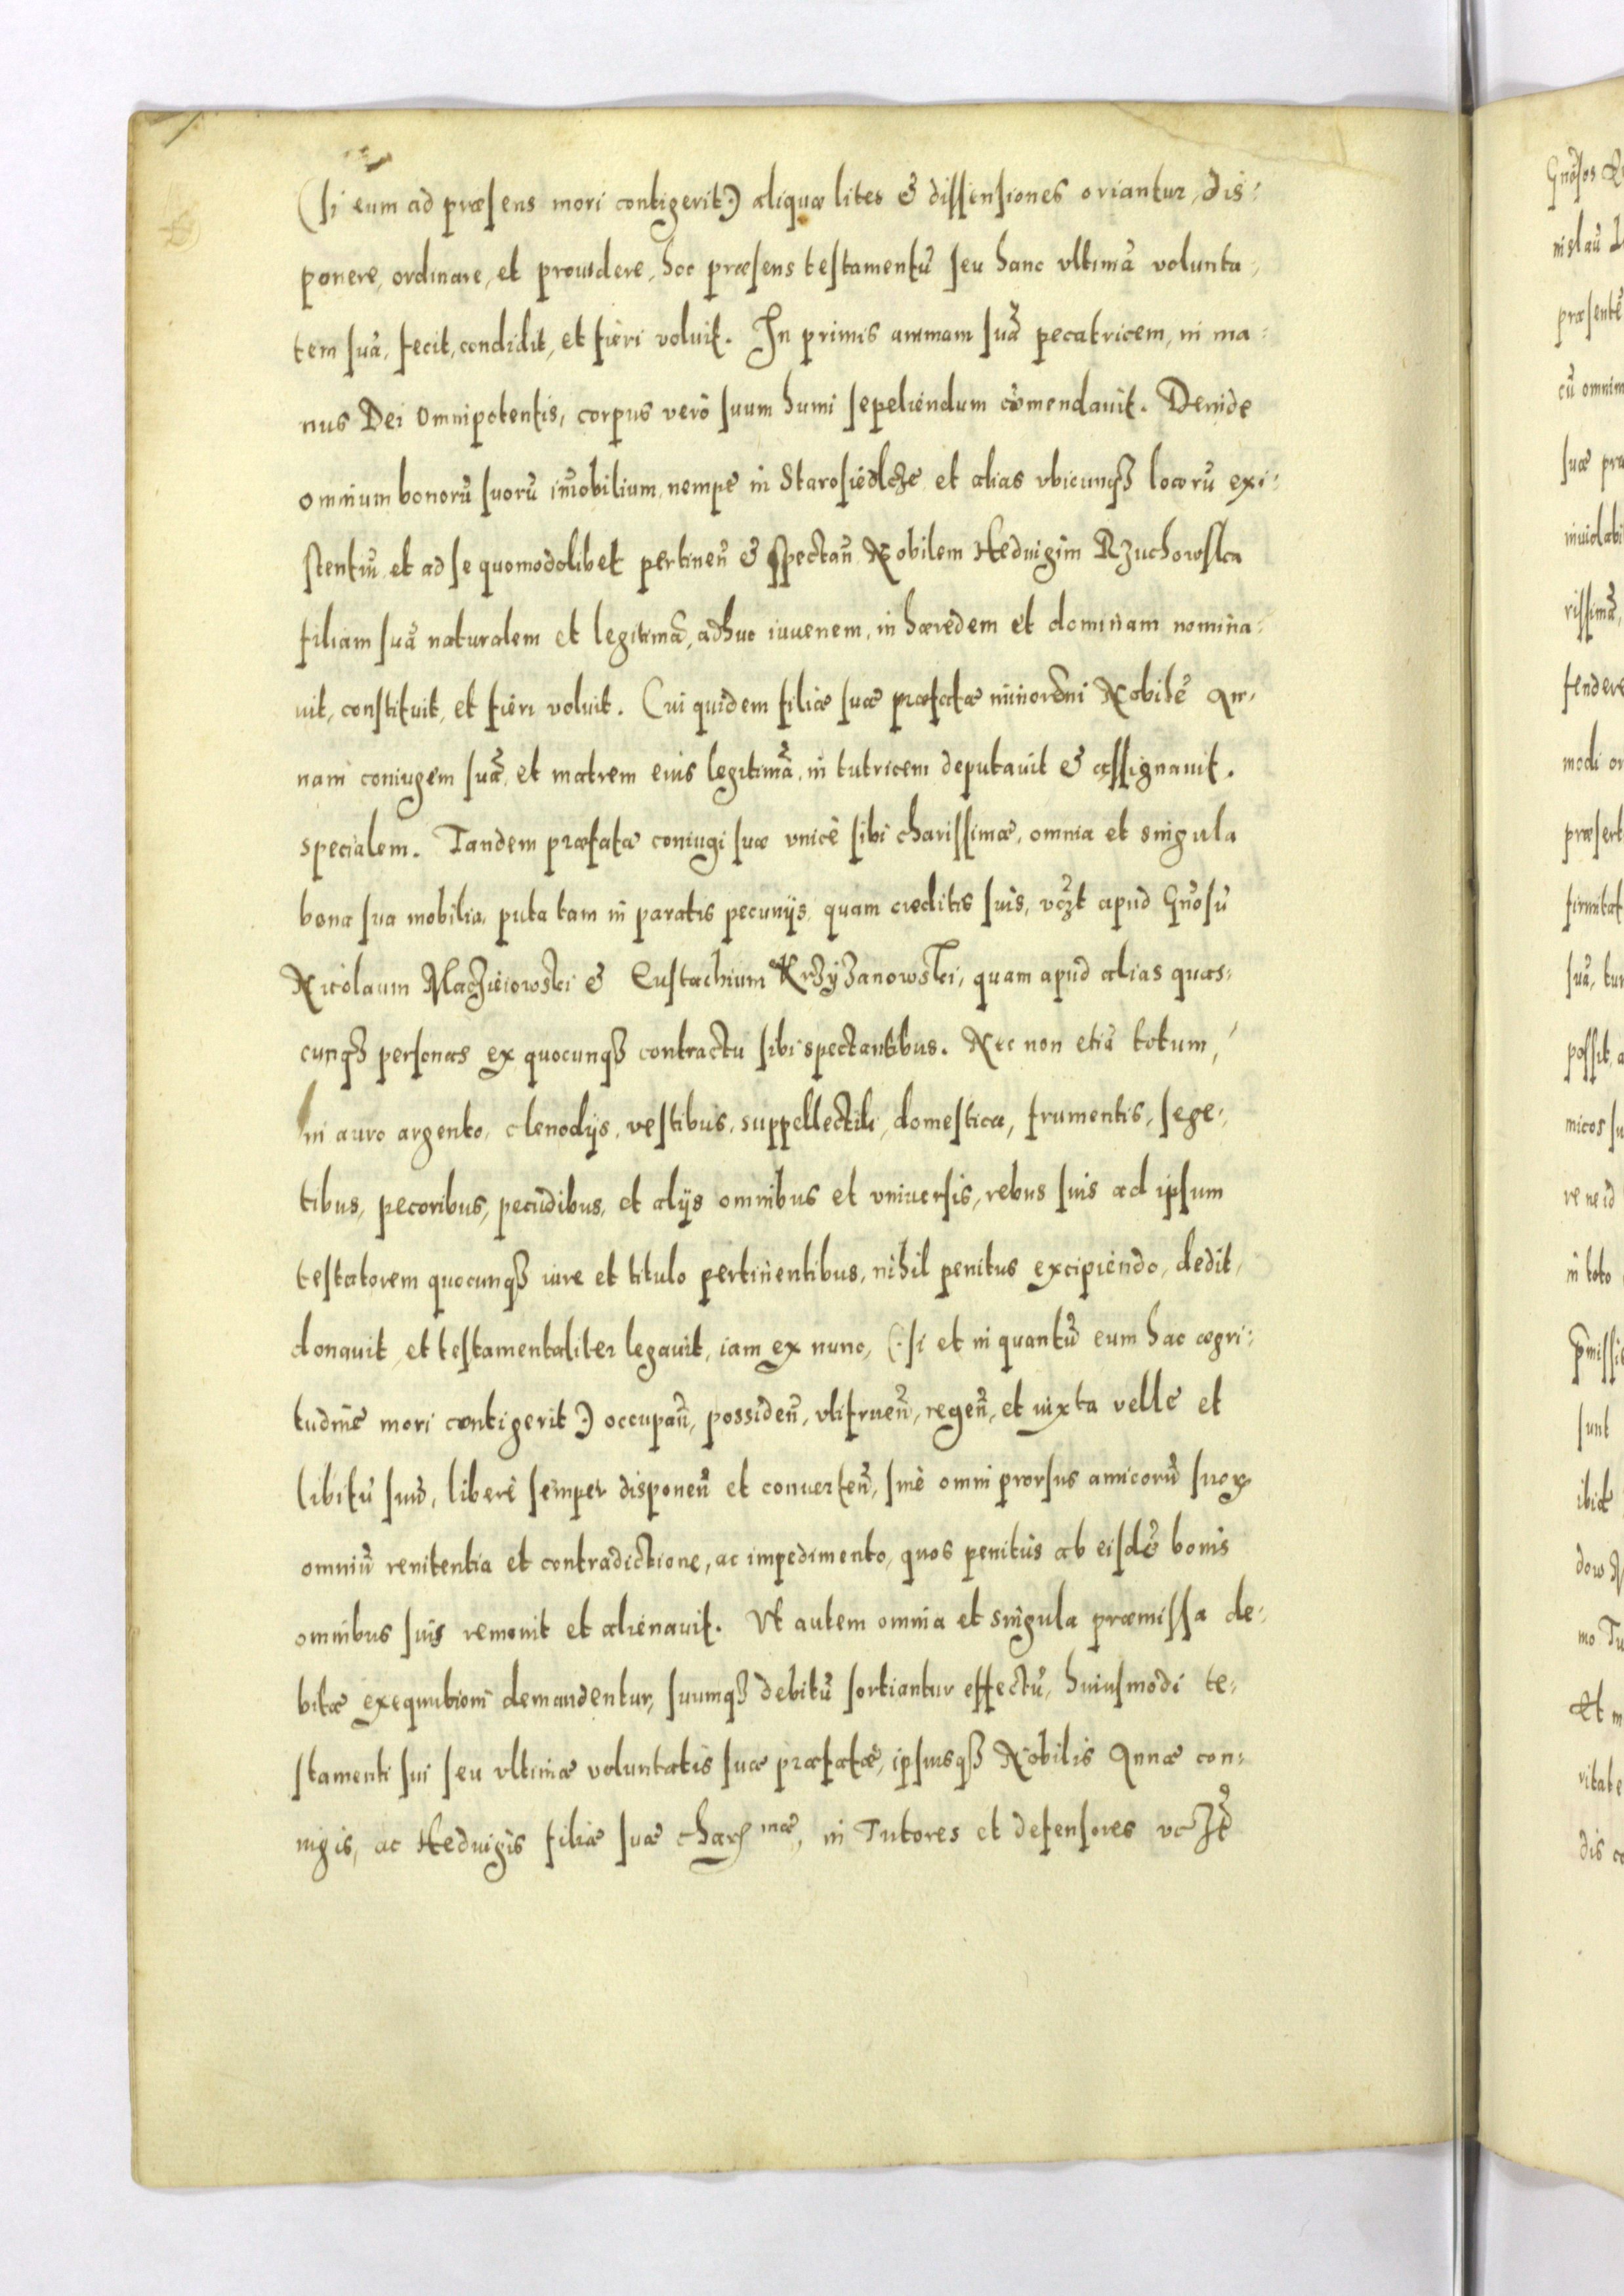 (si eum ad præsens mori contigerit:) aliquæ lites & dissensiones oriantur, dis-
ponere, ordinare, et prouidere, hoc præsens testamentũ seu hanc vltimã volunta-
tem suã, fecit, condidit, et fieri voluit. In primis animam suã pecatricem, in ma-
nus Dei Omnipotentis, corpus verò suum humi sepeliendum cõmendauit. Deinde
omnium bonorũ suorũ im̃obilium, nempe in Starosiedlcze et alias vbicunqȝ locorũ exi-
stentiũ et ad se quomodolibet pertineñ & spectañ Nobilem Heduigim Rzuchowska
filiam suã naturalem et legitimã, adhuc iuuenem, in hæredem et dominam nomina-
uit, constituit, et fieri voluit. Cui quidem filiæ suæ præfatæ minorẽni Nobilẽ An-
nam coniugem suã, et matrem eius legitimã, in tutricem deputauit & assignauit.
specialem. Tandem præfatæ coniugi suæ vnicè sibi charissimæ, omnia et singula
bona sua mobilia, puta tam in paratis pecunijs, quam creditis suis, vcȝt apud Gñosũ
Nicolaum Maczieiowski & Eustachium Krzyżanowski, quam apud alias quas-
cunqȝ personas ex quocunqȝ contractu sibi spectantibus. Nec non etiã totum,
in auro argento, clenodijs, vestibus, suppellectili, domestica, frumentis, sege-
tibus, pecoribus, pecudibus, et alijs omnibus et vniuersis, rebus suis ad ipsum
testatorem quocunqȝ iure et titulo pertinentibus, nihil penitus excipiendo, dedit,
donauit, et testamentaliter legauit, iam ex nunc, (:si et in quantũ eum hac ægri-
tudine mori contigerit:) occupañ, possideñ, vtifrueñ, regeñ, et iuxta velle et
libitũ suũ, liberè semper disponeñ et conuerteñ, sinè omni prorsus amicorũ suoꝝ
omniũ renitentia et contradictione, ac impedimento, quos penitùs ab eisdẽ bonis
omnibus suis remouit et alienauit. Vt autem omnia et singula præmissa de-
bitæ exequutioni demandentur, suumqȝ debitũ sortiantur effectũ, huiusmodi te-
stamenti sui seu vltimæ voluntatis suæ præfatæ, ipsiusqȝ Nobilis Annæ con-
iugis, ac Heduigis filiæ suæ charissmæ, in Tutores et defensores vcȝt